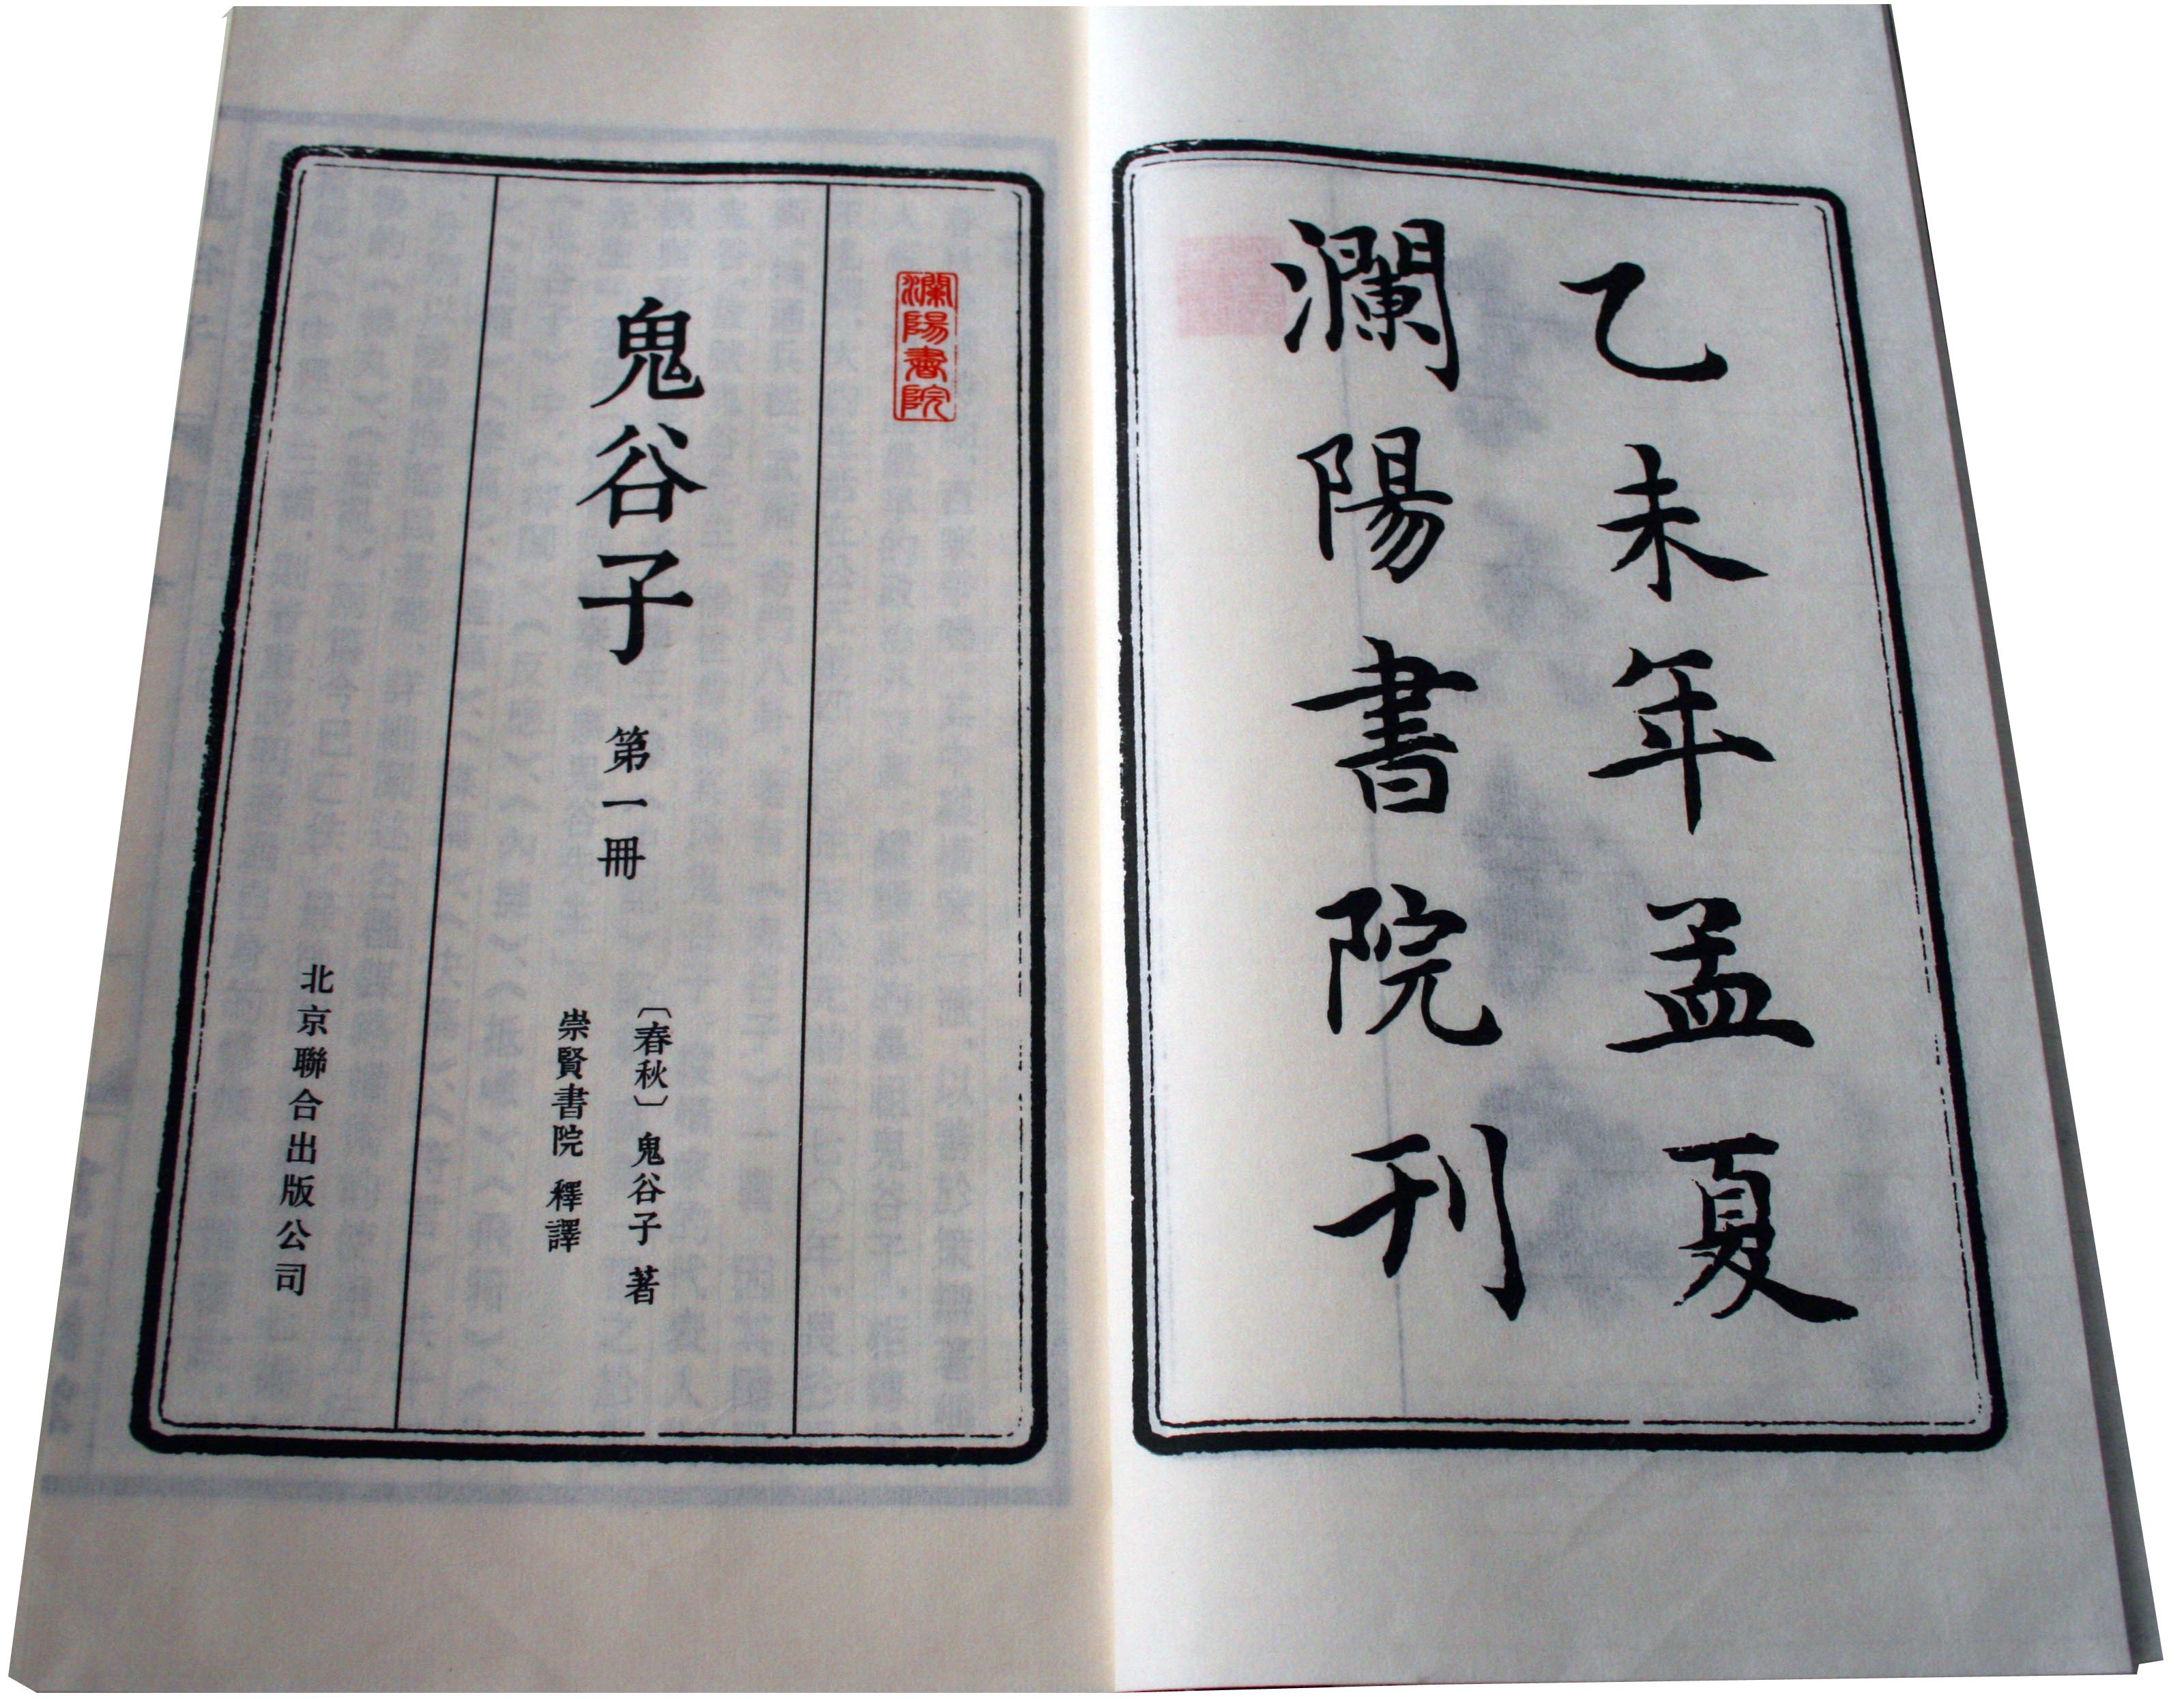 乙未年孟夏
瀾陽書院刊
瀾陽書院
鬼谷子 第一冊
〔春秋〕鬼谷子 著
崇賢書院 釋譯
北京聯合出版公司